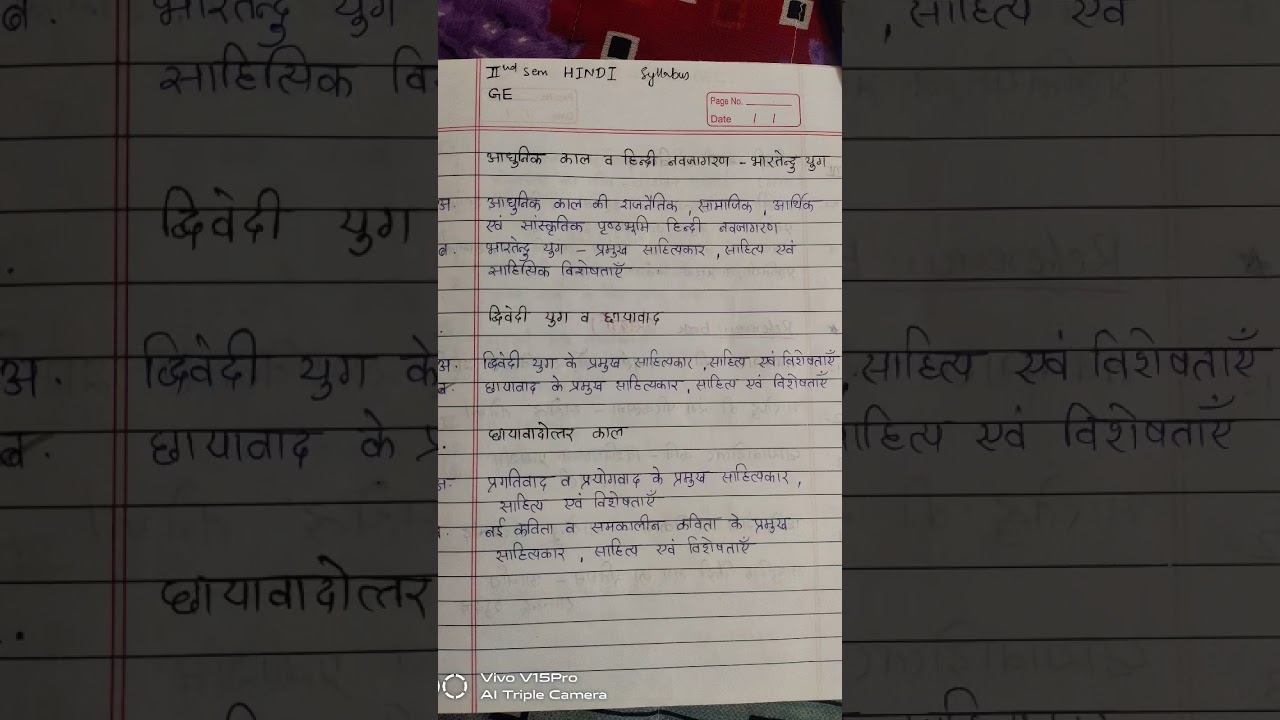 IInd Sem HINDI Syllabus
GE
Page No.
Date / /
आधुनिक काल व हिन्दी नवजागरण - भारतेन्दु युग
अ. आधुनिक काल की राजनैतिक, सामाजिक, आर्थिक
एवं सांस्कृतिक पृष्ठभूमि हिन्दी नवजागरण
ब. भारतेन्दु युग - प्रमुख साहित्यकार, साहित्य एवं
साहित्यिक विशेषताएँ
द्विवेदी युग व छायावाद
अ. द्विवेदी युग के प्रमुख साहित्यकार, साहित्य एवं विशेषताएँ
ब. छायावाद के प्रमुख साहित्यकार, साहित्य एवं विशेषताएँ
छायावादोत्तर काल
अ. प्रगतिवाद व प्रयोगवाद के प्रमुख साहित्यकार,
साहित्य एवं विशेषताएँ
ब. नई कविता व समकालीन कविता के प्रमुख
साहित्यकार, साहित्य एवं विशेषताएँ
Vivo V15Pro
AI Triple Camera